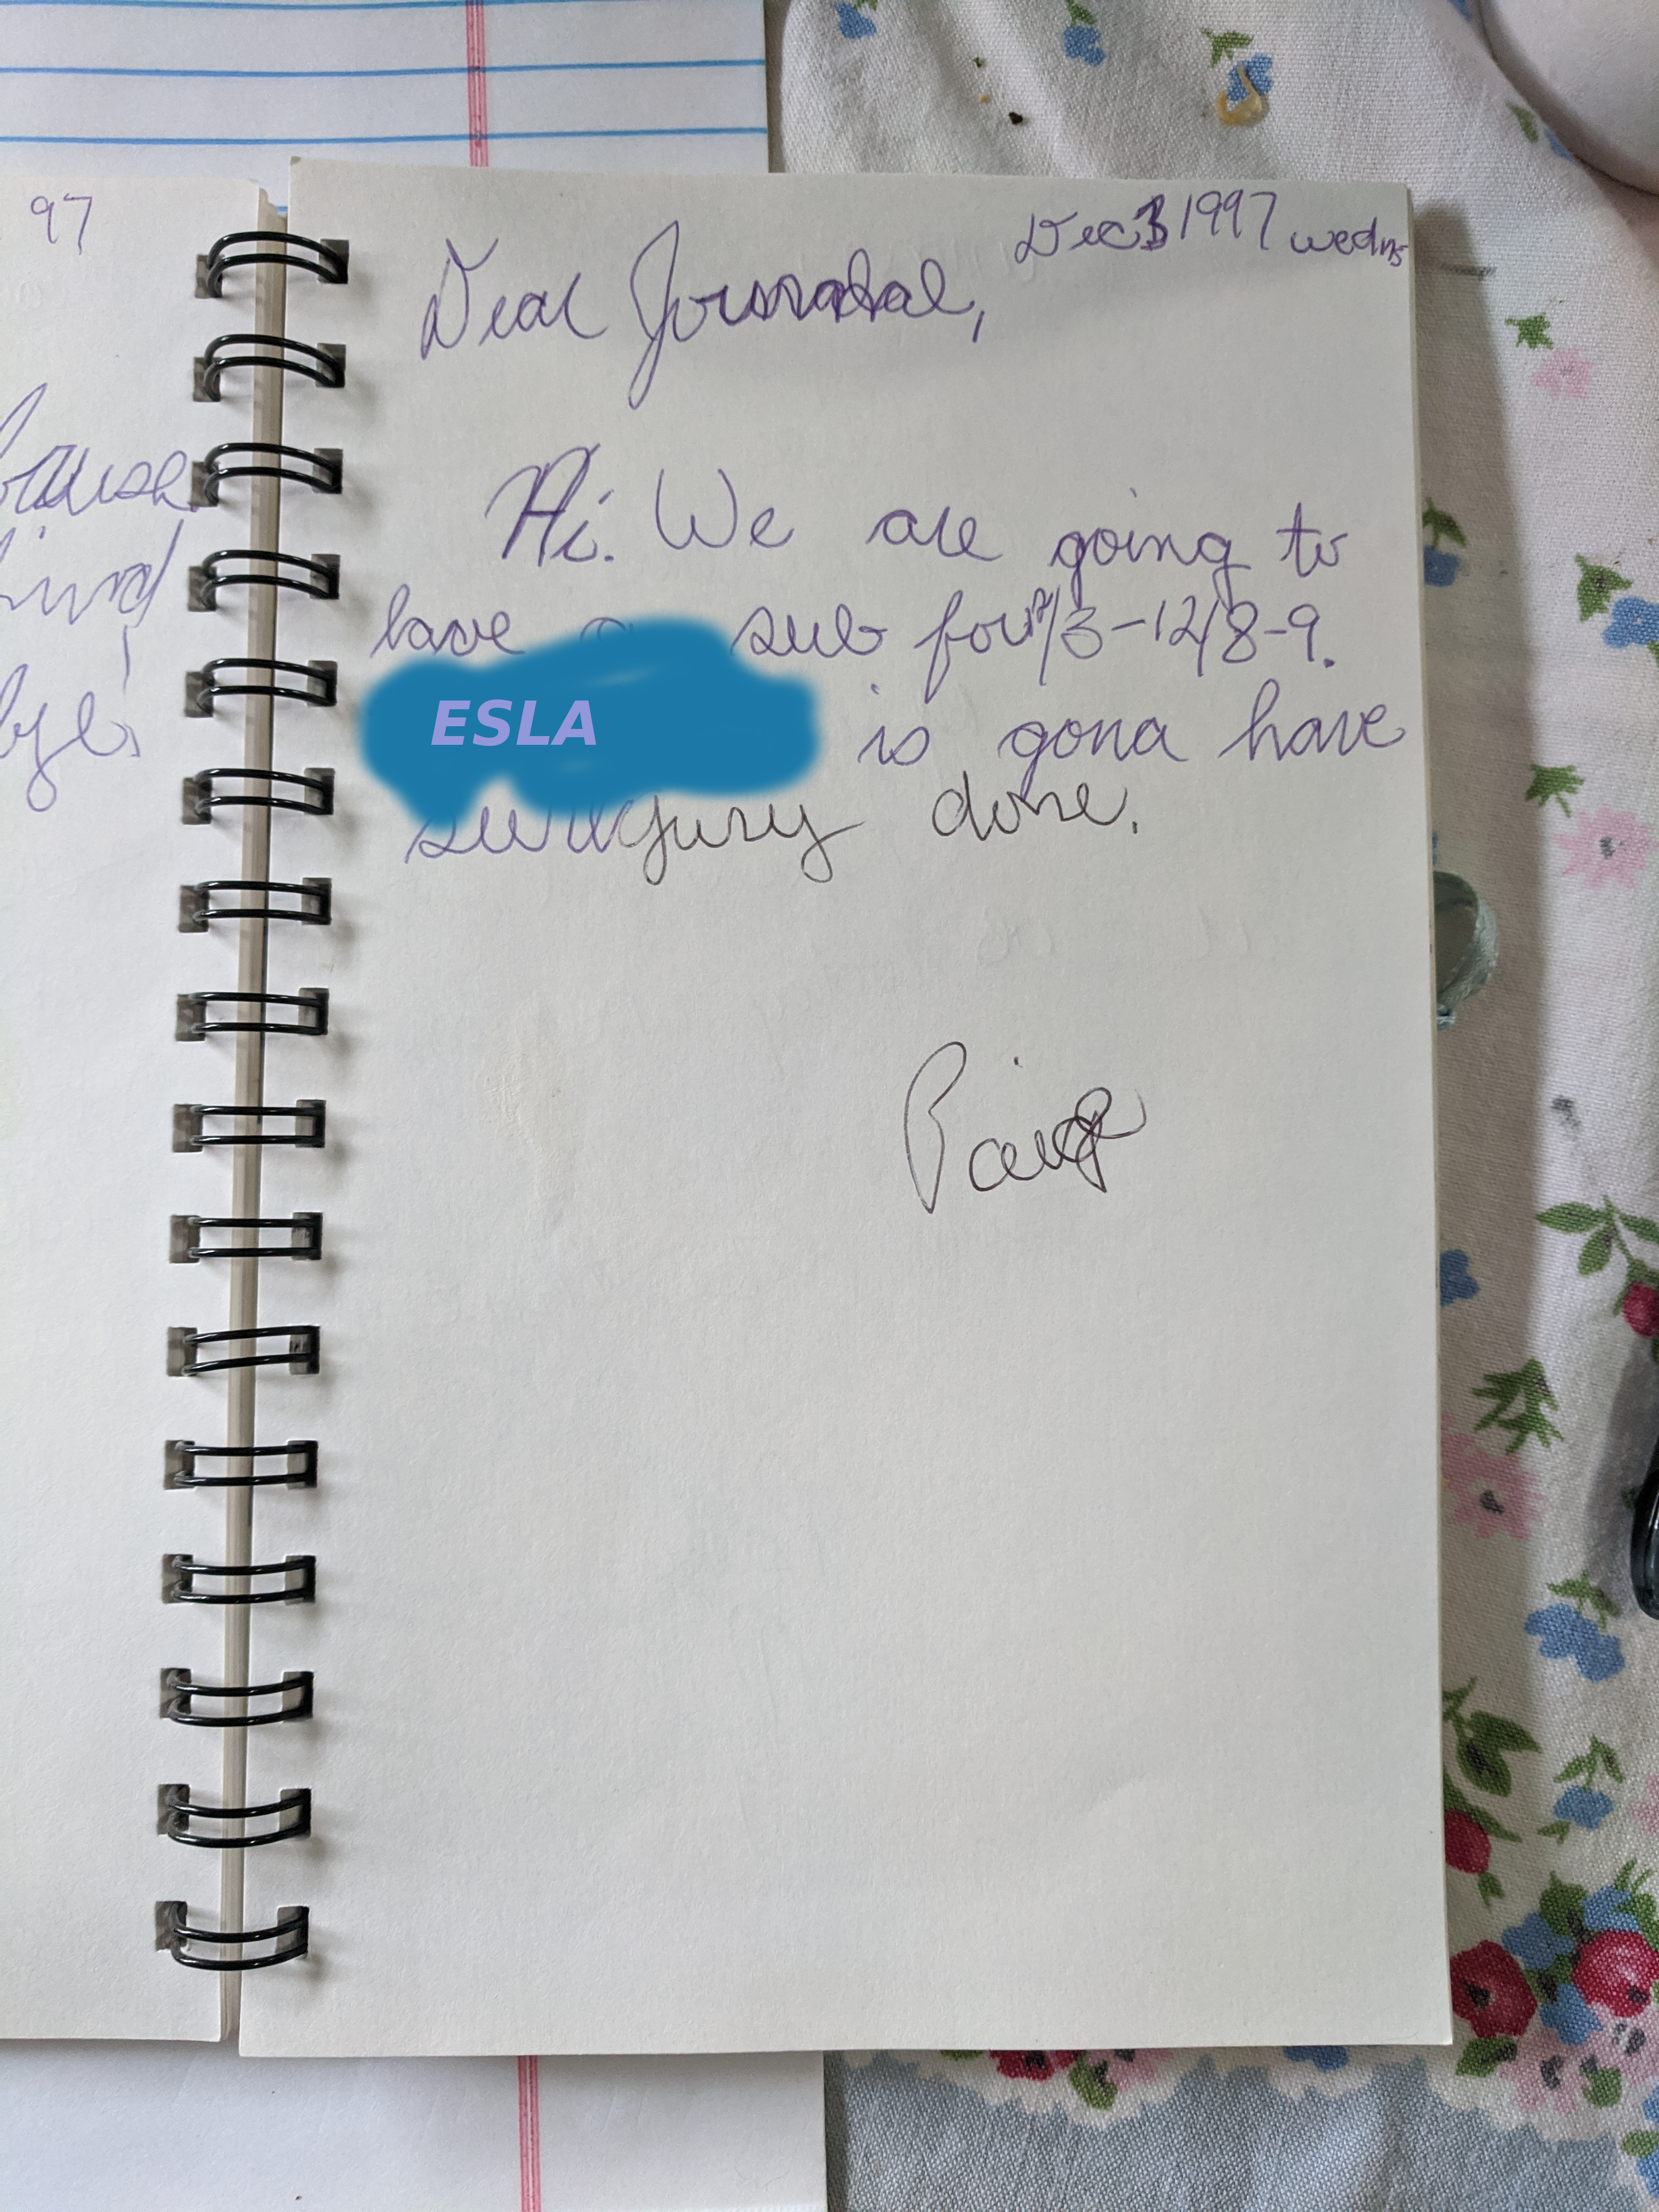 97
Dec 3 1997 wedns
Dear Jornatal,
Hi. We are going to
have a sub for 12/3-12/8-9.
ESLA is gona have
surgury done.
Paige
kind
bye.